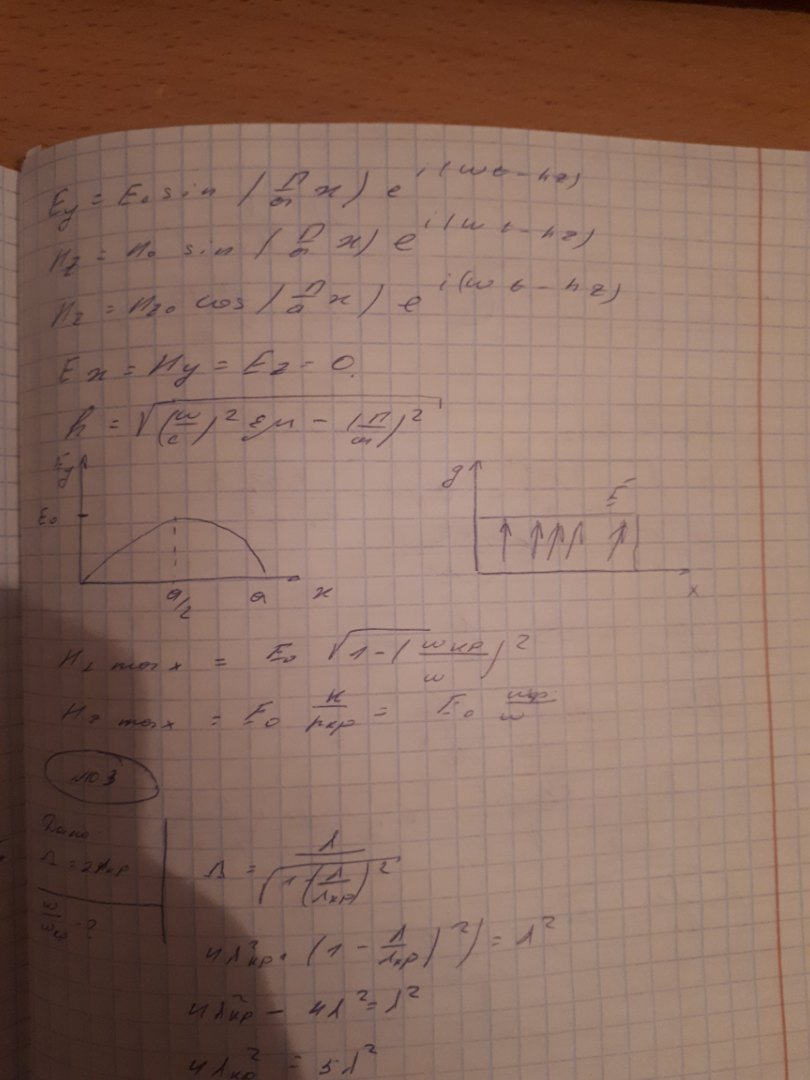 Ey = E₀ sin (π/a x) e^{i(ωt - hz)}
Hz = H₀ sin (π/a x) e^{i(ωt - hz)}
Hz = Hz₀ cos (π/a x) e^{i(ωt - hz)}
Ex = Hy = Ez = 0.
h = √((ω/c)² εμ - (π/a)²)
Ey
E₀
a/2
a
x
y
E
x
H⊥ max = E₀ √(1 - (ωкр/ω)²
Hz max = E₀ = E₀ ωкр/ω
№ 3
Дано:
Λ = 2λкр
ω/ωкр - ?
Λ = λ/√(1 - (λ/λкр)²
4λ²кр · (1 - λ/λкр)²) = λ²
4λ²кр - 4λ² = λ²
4λкр² = 5λ²